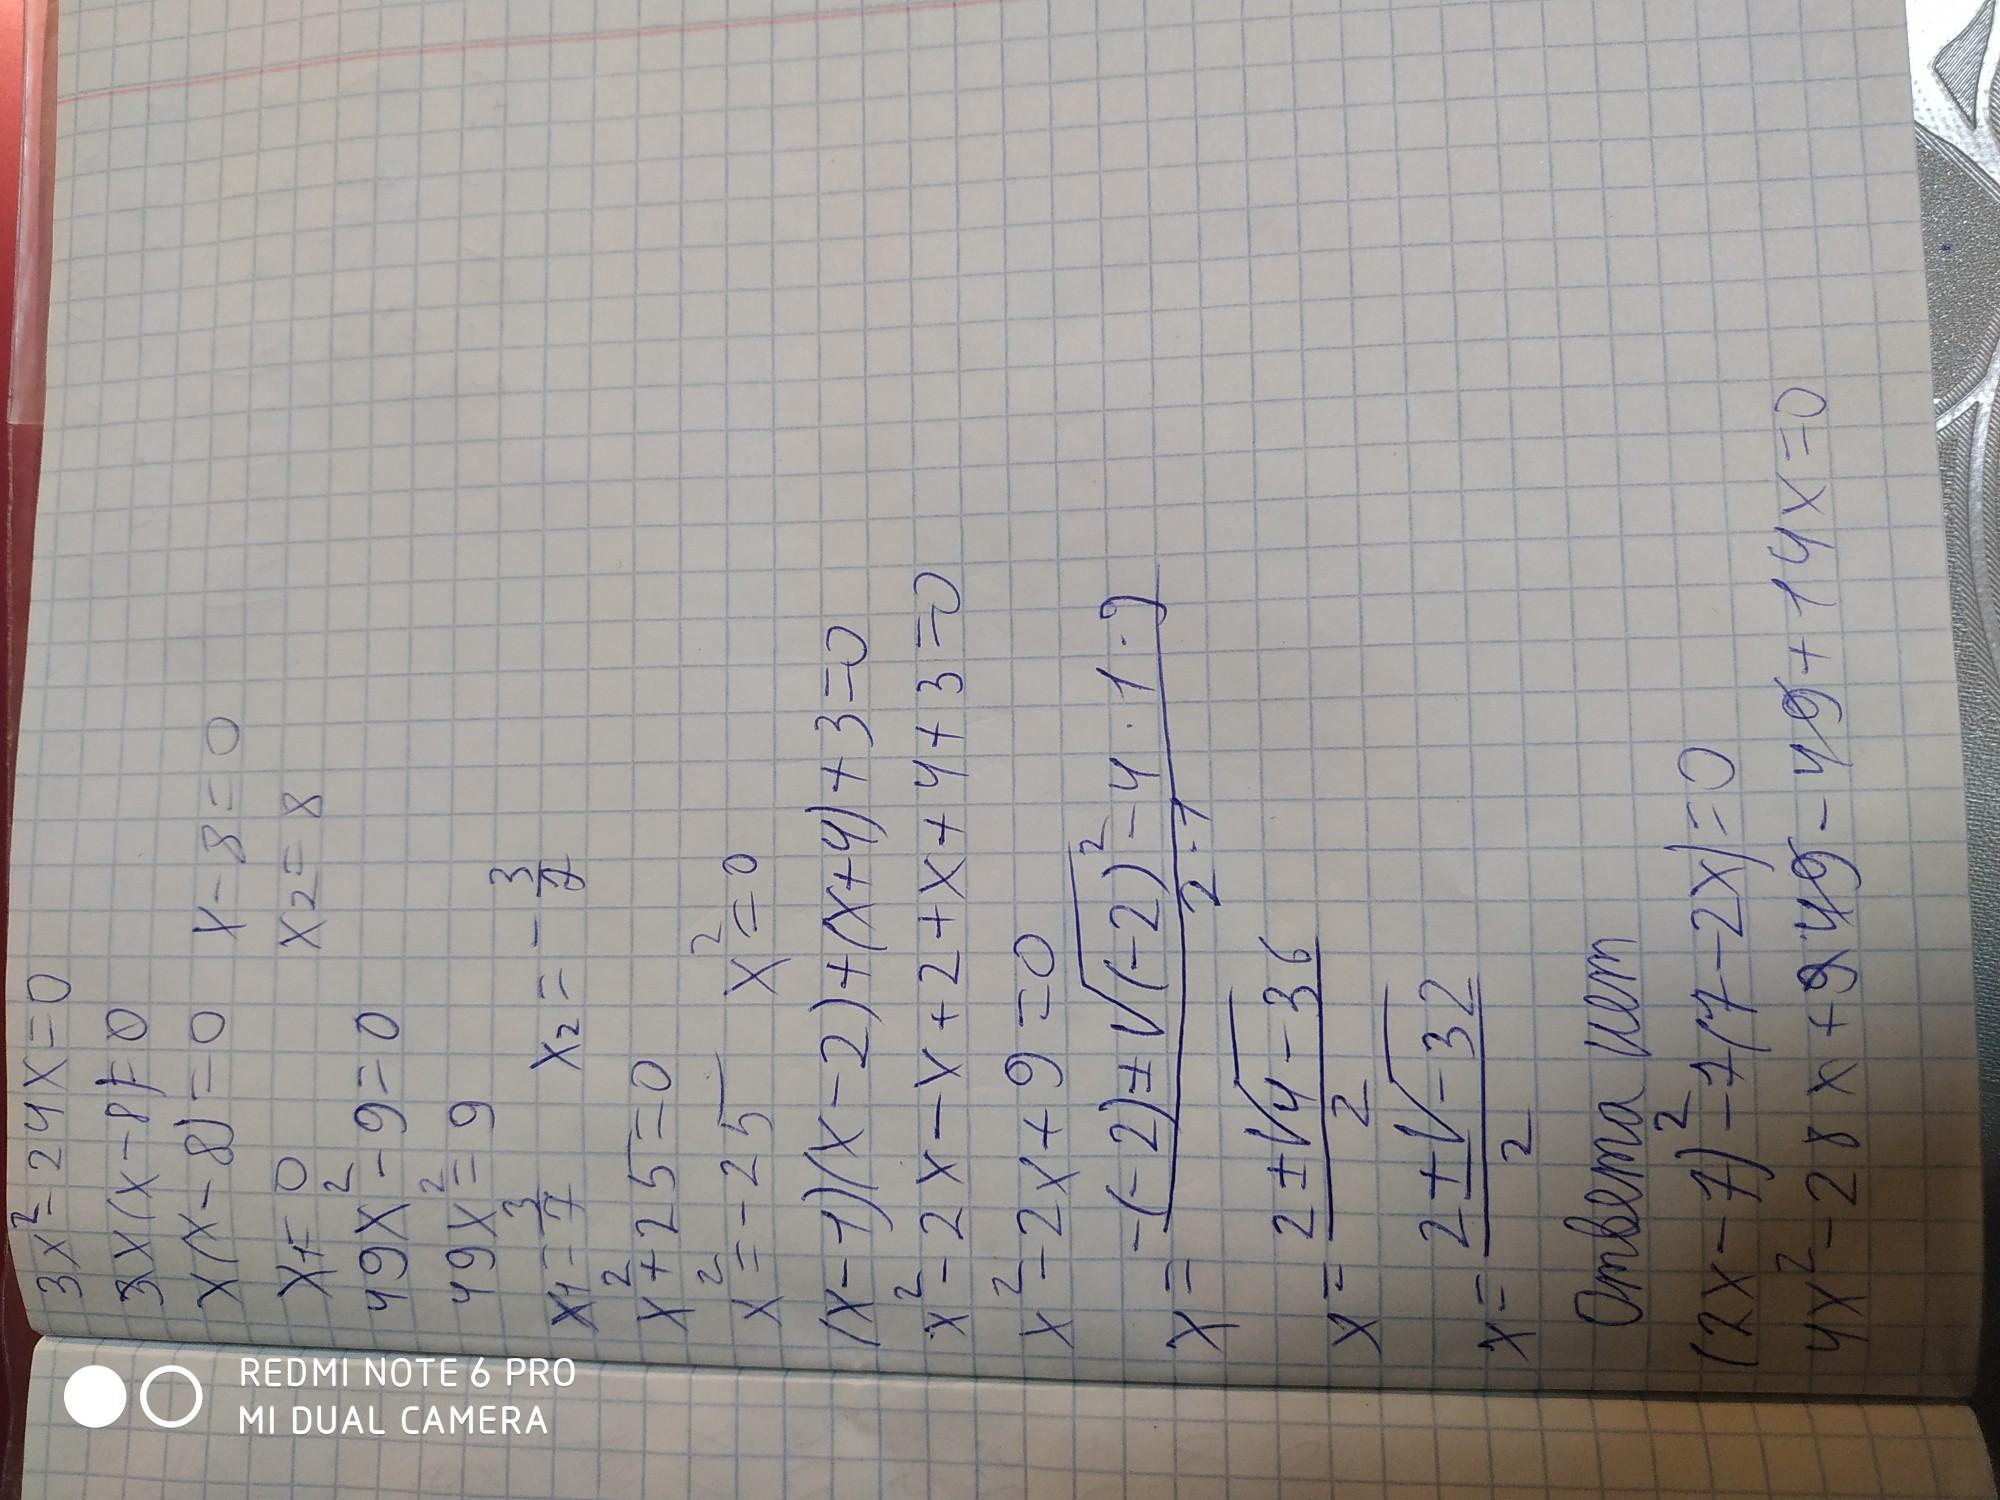 3x²-24x=0
3x(x-8)=0
x(x-8)=0 x-8=0
x₁=0 x₂=8
49x²-9=0
49x²=9
x₁=3/7 x₂=-3/7
x²+25=0
x²=-25 x²=0
(x-1)(x-2)+(x+4)+3=0
x²-2x-x+2+x+4+3=0
x²-2x+9=0
x=(-(-2)±√((-2)²-4·1·9))/(2·1)
x=(2±√(4-36))/2
x=(2±√(-32))/2
Ответа нет
(2x-7)²-7(7-2x)=0
4x²-28x+49-49+14x=0
REDMI NOTE 6 PRO
MI DUAL CAMERA